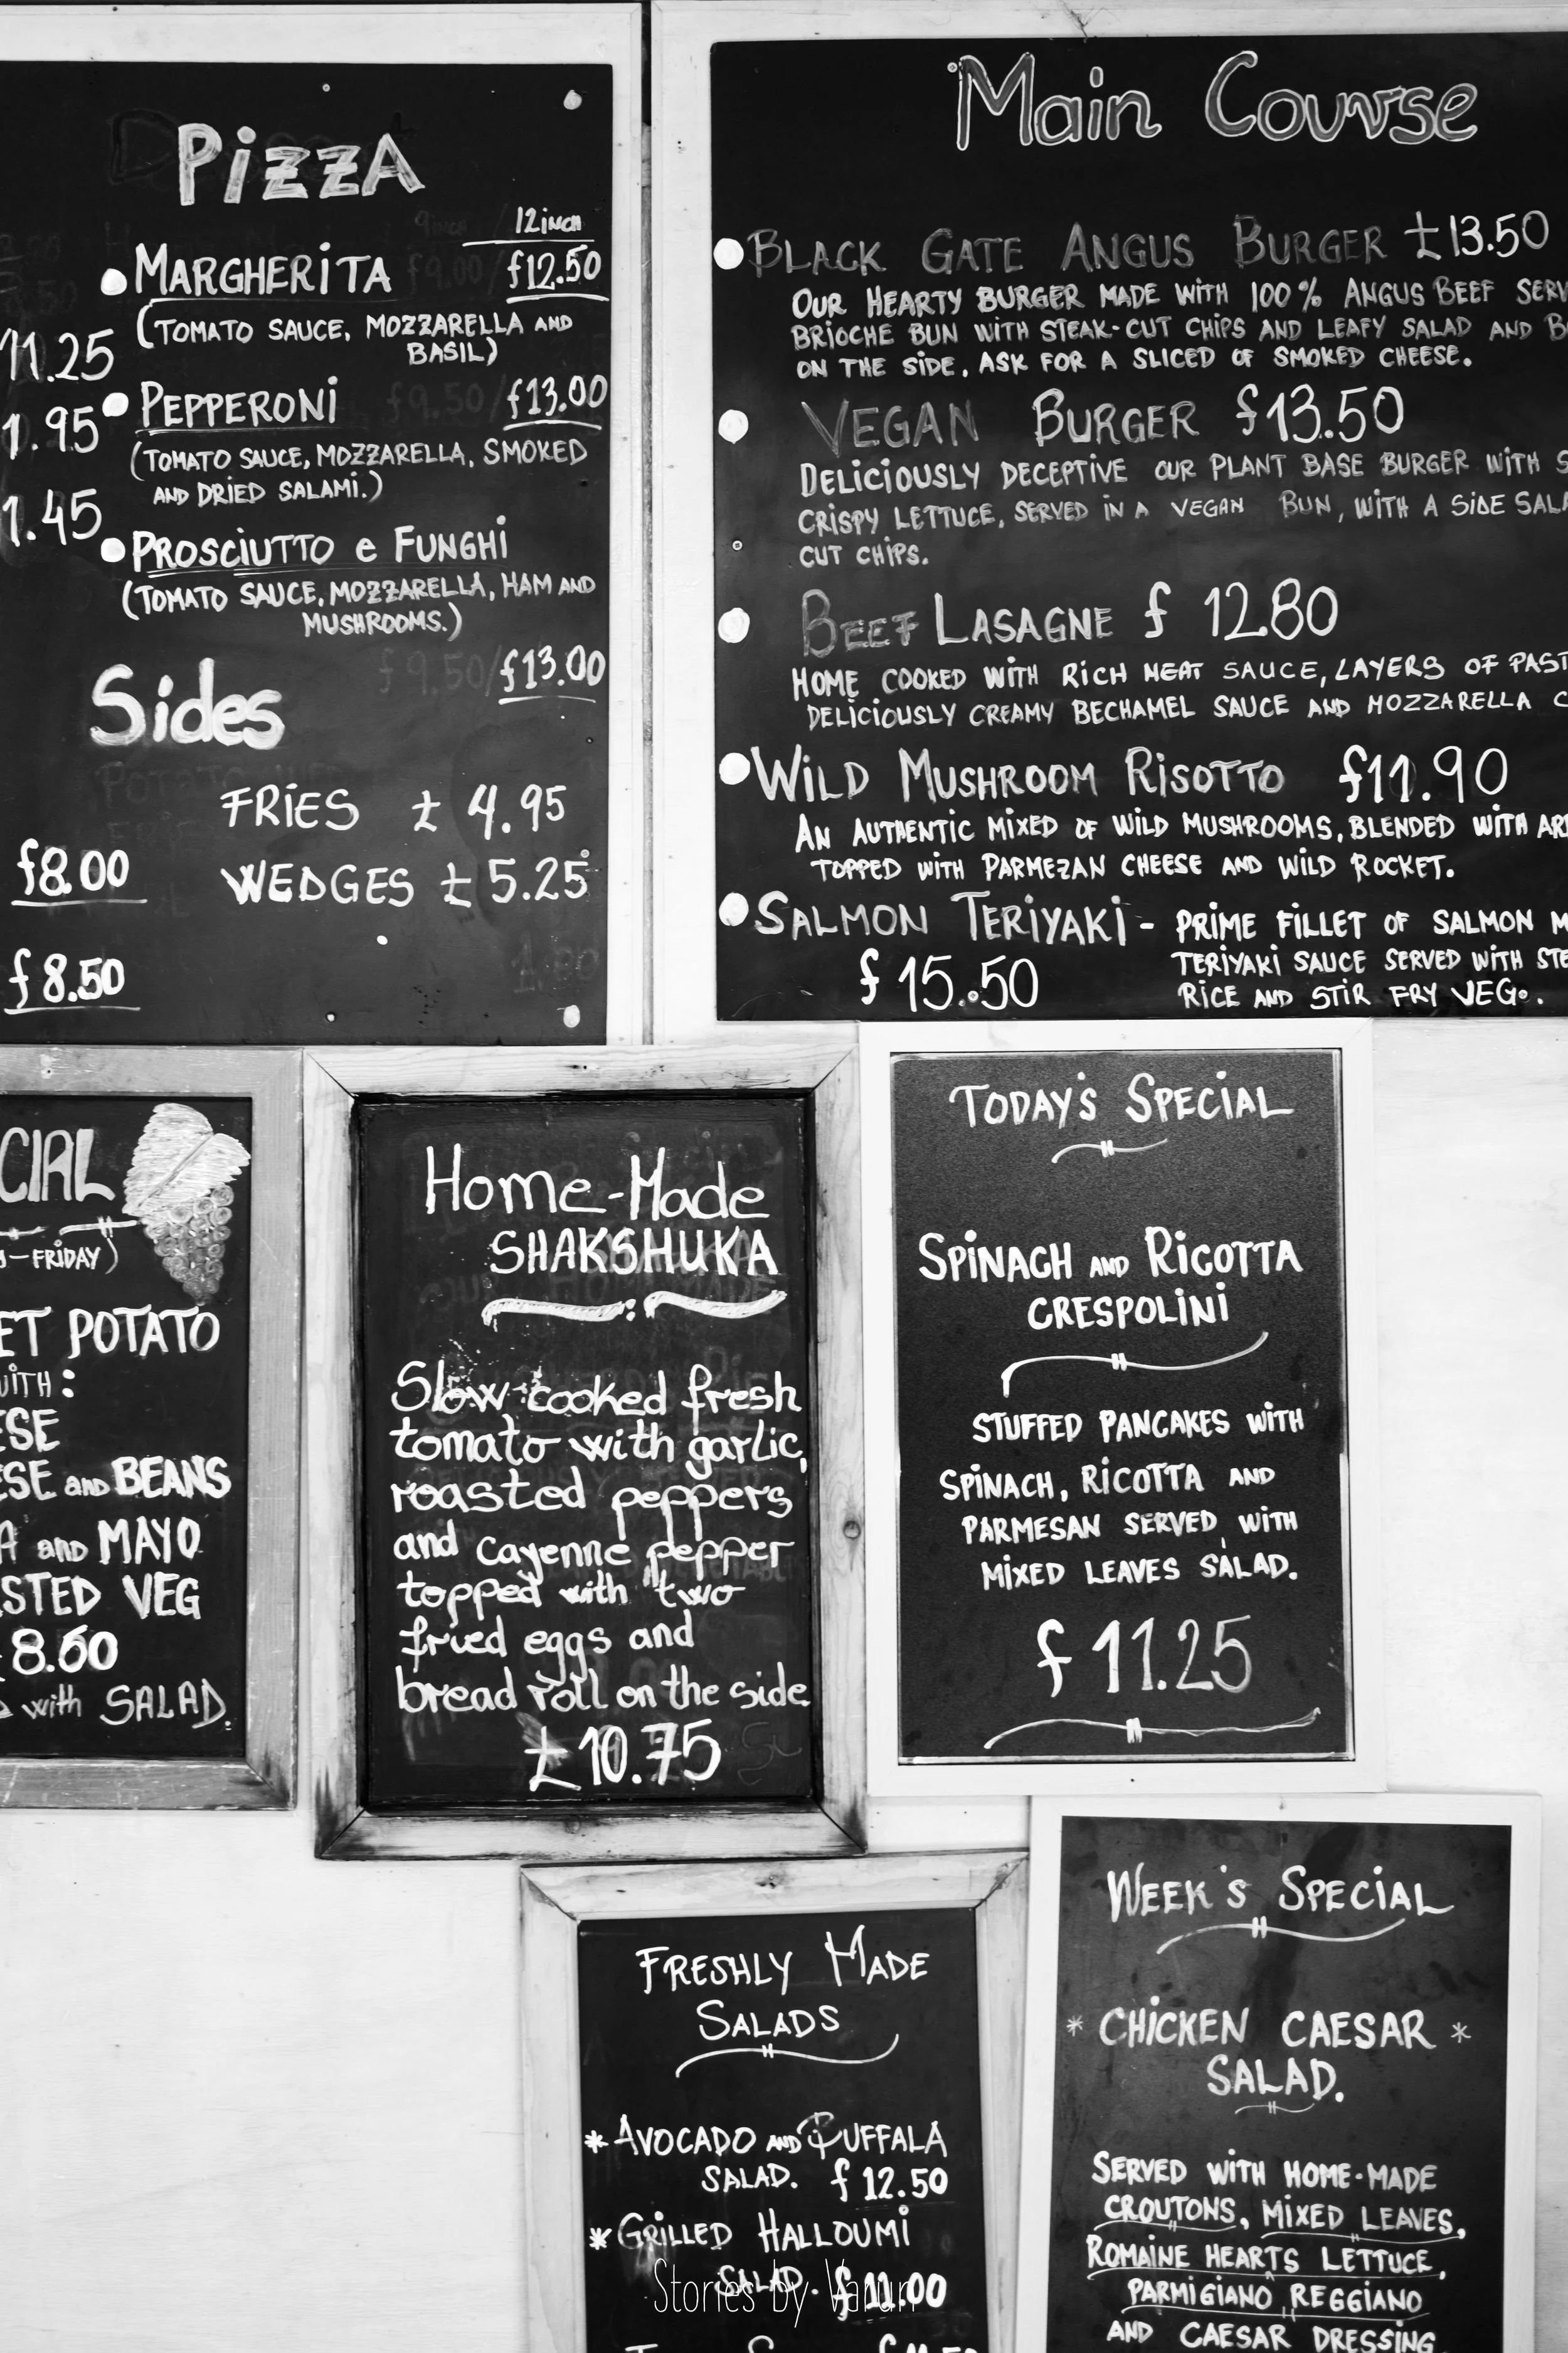 PizzA
12inch
MARGHERiTA £12.50
(TOMATO SAUCE, MOZZARELLA AND
BASiL)
PEPPERONi £13.00
(TOMATO SAUCE, MOZZARELLA, SMOKED
AND DRIED SALAMi.)
PROSCiUTTO e FUNGHi
(TOMATO SAUCE, MOZZARELLA, HAM AND
MUSHROOMS.)
£9.50/£13.00
11.25
1.95
1.45
Sides
FRiES £4.95
WEDGES £5.25
£8.00
£8.50
Main Course
BLACK GATE ANGUS BURGER £13.50
OUR HEARTY BURGER MADE WITH 100% ANGUS BEEF SERV
BRIOCHE BUN WITH STEAK-CUT CHIPS AND LEAFY SALAD AND B
ON THE SIDE, ASK FOR A SLICED OF SMOKED CHEESE.
VEGAN BURGER £13.50
DELICIOUSLY DECEPTIVE OUR PLANT BASE BURGER WITH S
CRISPY LETTUCE, SERVED IN A VEGAN BUN, WITH A SIDE SALA
CUT CHIPS.
BEEF LASAGNE £ 1280
HOME COOKED WITH RICH MEAT SAUCE, LAYERS OF PAST
DELICIOUSLY CREAMY BECHAMEL SAUCE AND MOZZARELLA C
WILD MUSHROOM RISOTTO £11.90
AN AUTHENTIC MIXED OF WILD MUSHROOMS, BLENDED WITH AR
TOPPED WITH PARMEZAN CHEESE AND WILD ROCKET.
SALMON TERIYAKI - PRIME FILLET OF SALMON M
£15.50 TERIYAKI SAUCE SERVED WITH STE
RICE AND STIR FRY VEG.
CIAL
-FRIDAY)
ET POTATO
WITH:
ESE
ESE AND BEANS
A AND MAYO
STED VEG
8.60
with SALAD.
Home-Made
SHAKSHUKA
Slow-cooked fresh
tomato with garlic,
roasted peppers
and cayenne pepper
topped with two
fried eggs and
bread roll on the side
£10.75
TODAY'S SPECIAL
SPINACH AND RICOTTA
CRESPOLINI
STUFFED PANCAKES WITH
SPINACH, RICOTTA AND
PARMESAN SERVED WITH
MIXED LEAVES SALAD.
£11.25
FRESHLY MADE
SALADS
* AVOCADO AND BUFFALA
SALAD. £12.50
* GRILLED HALLOUMI
SALAD. £11.00
Stories by Varun
WEEK'S SPECIAL
* CHICKEN CAESAR *
SALAD.
SERVED WITH HOME-MADE
CROUTONS, MIXED LEAVES,
ROMAINE HEARTS LETTUCE,
PARMIGIANO REGGIANO
AND CAESAR DRESSING